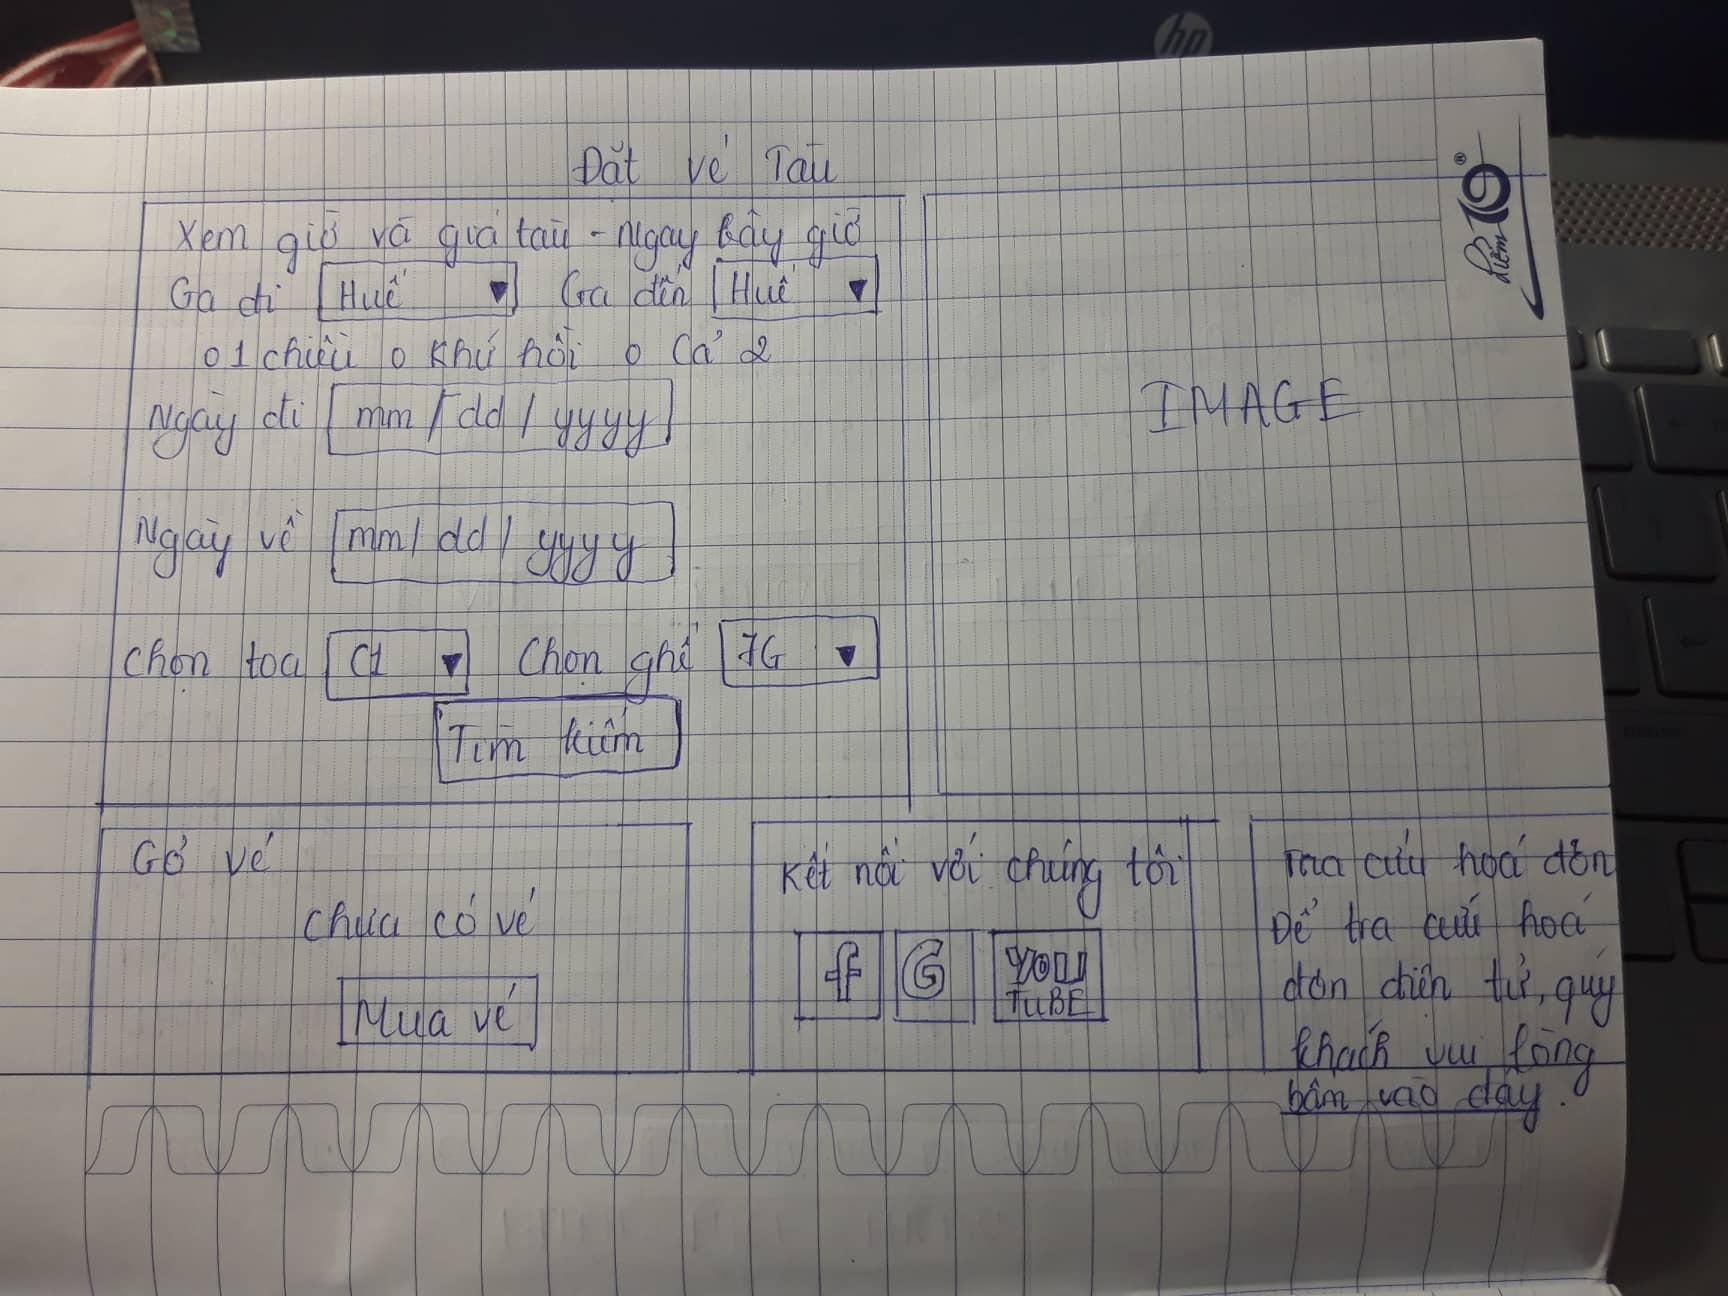 Đặt vé Tàu
Xem giờ và giá tàu - Ngay bây giờ
Ga đi Huế ▼ Ga đến Huế ▼
o 1 chiều o Khứ hồi o Cả 2
Ngày đi mm/dd/yyyy
Ngày về mm/dd/yyyy
Chọn toa C1 ▼ Chọn ghế 7G ▼
Tìm kiếm
IMAGE
Giỏ vé
Chưa có vé
Mua vé
Kết nối với chúng tôi
f G YOU
TUBE
Tra cứu hoá đơn
Để tra cứu hoá
đơn điện tử, quý
khách vui lòng
bấm vào đây.
điểm 10 ®
hp